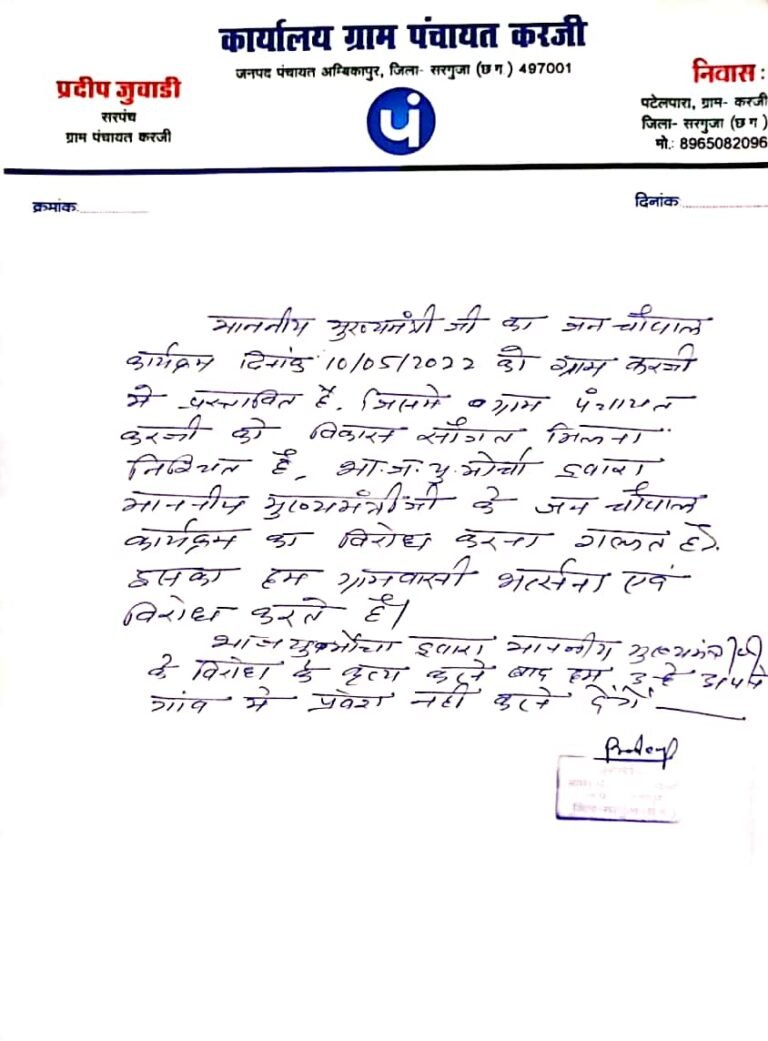 कार्यालय ग्राम पंचायत करजी
जनपद पंचायत अम्बिकापुर, जिला- सरगुजा (छ ग ) 497001
प्रदीप जुवाडी
सरपंच
ग्राम पंचायत करजी
पं
निवास :
पटेलपारा, ग्राम- करजी
जिला- सरगुजा (छ ग )
मो.: 8965082096
क्रमांक
दिनांक
माननीय मुख्यमंत्री जी का जन चौपाल
कार्यक्रम दिनांक 10/05/2022 को ग्राम करजी
मे प्रस्तावित है. जिसमे ग्राम पंचायत
करजी को विकास सौगात मिलना
निश्चित है, भा.ज.यु.मोर्चा द्वारा
माननीय मुख्यमंत्रीजी के जन चौपाल
कार्यक्रम का विरोध करना गलत है।
इसका हम ग्रामवासी भर्त्सना एवं
विरोध करते है।
भाजयुमोर्चा द्वारा माननीय मुख्यमंत्रीजी
के विरोध के कृत्य करने बाद हम उन्हे अपने
गांव मे प्रवेश नही करने देगें
Pradeep